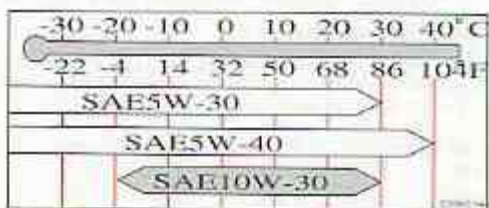 -30 -20 -10 0 10 20 30 40°C
-22 -4 14 32 50 68 86 104F
SAE5W-30
SAE5W-40
SAE10W-30